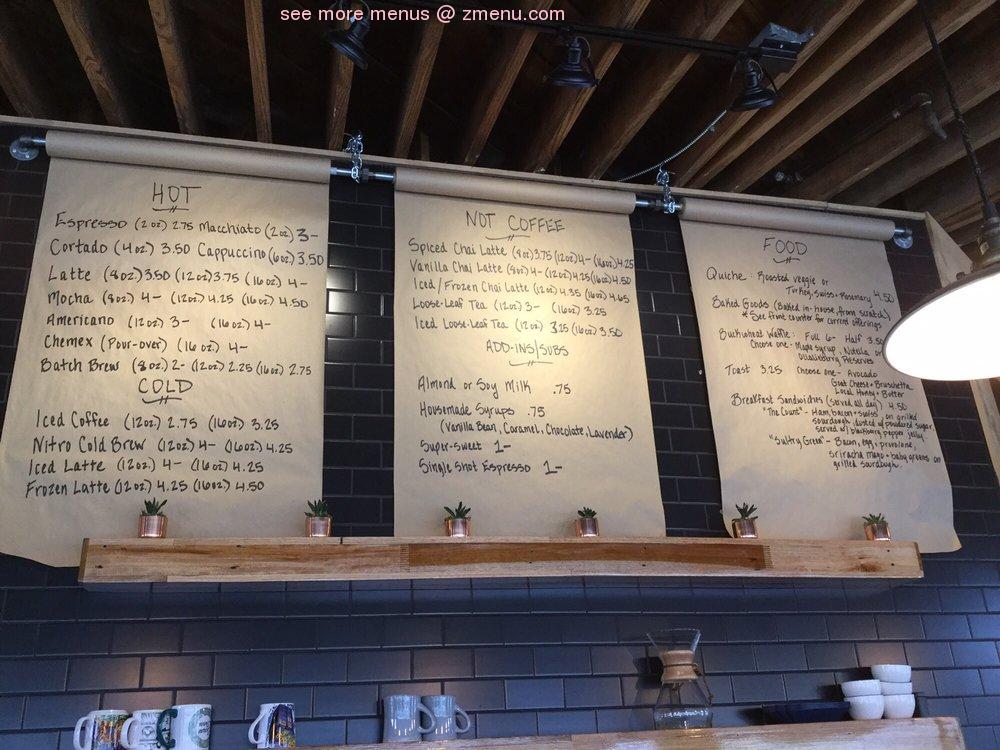 see more menus @ zmenu.com
HOT
Espresso (2oz) 2.75 Macchiato (2oz) 3-
Cortado (4oz.) 3.50 Cappuccino (6oz) 3.50
Latte (8oz) 3.50 (12oz) 3.75 (16oz) 4-
Mocha (8oz) 4- (12oz) 4.25 (16oz) 4.50
Americano (12oz) 3- (16oz.) 4-
Chemex (Pour-over) (16oz.) 4-
Batch Brew (8oz.) 2- (12oz.) 2.25 (16oz) 2.75
COLD
Iced Coffee (12oz.) 2.75 (16oz) 3.25
Nitro Cold Brew (12oz) 4- (16oz) 4.25
Iced Latte (12oz.) 4- (16oz) 4.25
Frozen Latte (12oz.) 4.25 (16oz) 4.50
NOT COFFEE
Spiced Chai Latte (8oz) 3.75 (12oz) 4- (16oz) 4.25
Vanilla Chai Latte (8oz) 4- (12oz) 4.25 (16oz) 4.50
Iced/Frozen Chai Latte (12oz) 4.35 (16oz) 4.65
Loose-Leaf Tea (12oz) 3- (16oz) 3.25
Iced Loose-Leaf Tea (12oz) 3.25 (16oz) 3.50
ADD-INS/SUBS
Almond or Soy Milk .75
Housemade Syrups .75
(Vanilla Bean, Caramel, Chocolate, Lavender)
Super-sweet 1-
Single Shot Espresso 1-
FOOD
Quiche: Roasted veggie or
Turkey, Swiss + Rosemary 4.50
Baked Goods (Baked in-house, from scratch)
* See front counter for current offerings
Buckwheat Waffle: Full 6- Half 3.50
Choose one- Maple syrup, Nutella or
Preserves
Toast 3.25 Choose one- Avocado
Goat Cheese + Bruschetta
Local Honey + Butter
Breakfast Sandwiches (served all day) 4.50
"The Count"- Ham, bacon + swiss, on grilled
sourdough, dusted w/ powdered sugar
served w/ blackberry pepper jelly
"Sultry Green"- Bacon, egg + provolone,
sriracha mayo + baby greens on
grilled sourdough